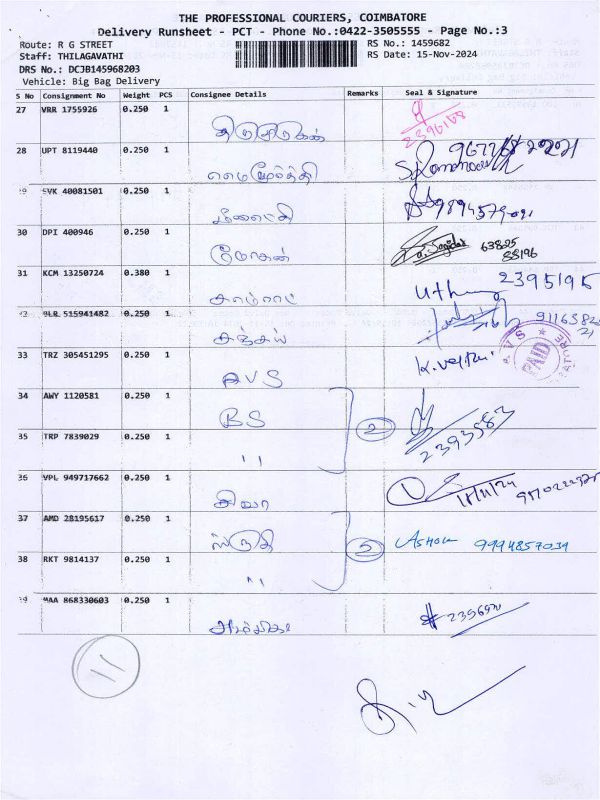 THE PROFESSIONAL COURIERS, COIMBATORE
Delivery Runsheet - PCT - Phone No.:0422-3505555 - Page No.:3
Route: R G STREET
Staff: THILAGAVATHI
DRS No.: DCJB145968203
Vehicle: Big Bag Delivery
RS No.: 1459682
RS Date: 15-Nov-2024
S No Consignment No Weight PCS Consignee Details Remarks Seal & Signature
27 VRR 1755926 0.250 1
2396168
28 UPT 8119440 0.250 1
SVK 40081501 0.250 1
30 DPI 400946 0.250 1 மோகன்
63825
88196
31 KCM 13250724 0.380 1 சாம்ராட் 2395195
BLR 515941482 0.250 1 சஞ்சய்
33 TRZ 305451295 0.250 1 AVS K. Vetri
34 AWY 1120581 0.250 1 BS 2
2393583
35 TRP 7839029 0.250 1 ''
36 VPL 949717662 0.250 1 சிவா
37 AMD 28195617 0.250 1 ஸ்ருதி 5 Ashok 9994857039
38 RKT 9814137 0.250 1 ''
MAA 868330603 0.250 1 அம்பிகா
11